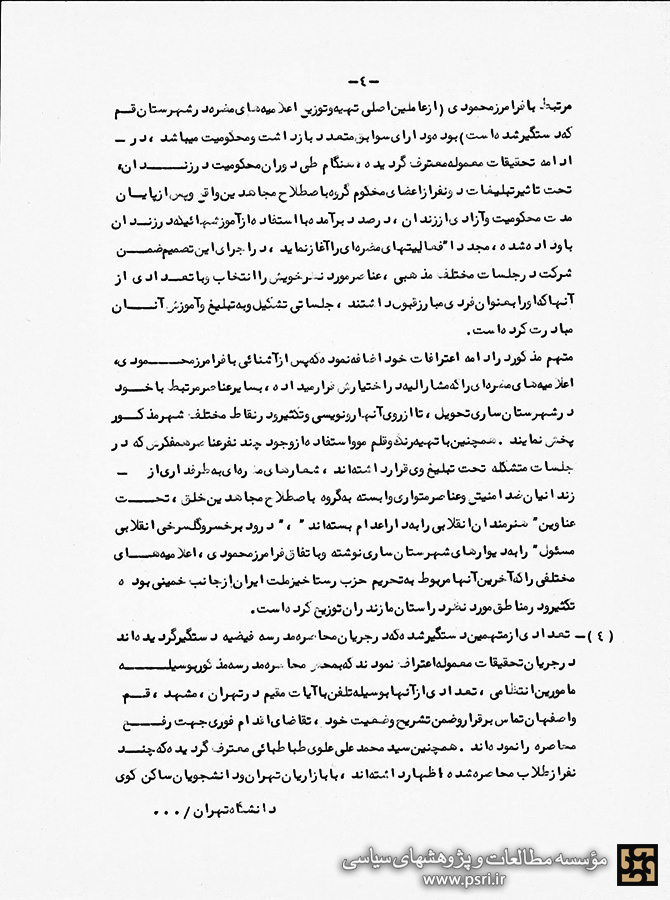 -٤-
مرتبط با فرامرز محمودی (از عاملین اصلی تهیه و توزیع اعلامیه‌های مضره در شهرستان قم
که دستگیر شده است) بوده و دارای سوابق متعدد بازداشت و محکومیت میباشد ، در -
ادامه تحقیقات معموله معترف گردیده ، هنگام طی دوران محکومیت در زنـــدان ،
تحت تاثیر تبلیغات دو نفر از اعضای محکوم گروه باصطلاح مجاهدین واقع و پس از پایـان
مدت محکومیت و آزادی از زندان ، درصدد برآمده با استفاده از آموزشهائیکه در زنـدان
باو داده شده ، مجددا" فعالیتهای مضره‌ای را آغاز نماید ، در اجرای این تصمیم ضمـن
شرکت در جلسات مختلف مذهبی ، عناصر مورد نظر خویش را انتخاب و با تعدادی از
آنها که او را بعنوان فردی مبارز قبول داشتند ، جلساتی تشکیل و به تبلیغ و آموزش آنـــان
مبادرت کرده است .
متهم مذکور در ادامه اعترافات خود اضافه نموده که پس از آشنائی با فرامرز محمــودی ،
اعلامیه‌های مضره‌ای را که مشارالیه در اختیارش قرار میداده ، بسایر عناصر مرتبط با خــود
در شهرستان ساری تحویل ، تا از روی آنها رونویسی و تکثیر و در نقاط مختلف شهر مذکـور
پخش نمایند . همچنین با تهیه رنگ و قلم مو و استفاده از وجود چند نفر عناصر همفکرش که در
جلسات متشکله تحت تبلیغ وی قرار داشته‌اند ، شعارهای مضره‌ای به طرفداری از -
زندانیان ضدامنیتی و عناصر متواری وابسته به گروه باصطلاح مجاهدین خلق ، تحـــت
عناوین " هنرمندان انقلابی را به دار اعدام بسته‌اند " ، " درود بر خسرو گلسرخی انقلابی
مسئول " را به دیوارهای شهرستان ساری نوشته و باتفاق فرامرز محمودی ، اعلامیه‌هـای
مختلفی را که آخرین آنها مربوط به تحریم حزب رستاخیز ملت ایران از جانب خمینی بوده
تکثیر و در مناطق مورد نظر در استان مازندران توزیع کرده است .
(٤)- تعدادی از متهمین دستگیر شده که در جریان محاصره مدرسه فیضیه دستگیر گردیده‌اند
در جریان تحقیقات معموله اعتراف نمودند که بمحض محاصره مدرسه مذکور بوسیلــــه
مامورین انتظامی ، تعدادی از آنها بوسیله تلفن با آیات مقیم در تهران ، مشهد ، قـم
و اصفهان تماس برقرار و ضمن تشریح وضعیت خود ، تقاضای اقدام فوری جهت رفــع
محاصره را نموده‌اند . همچنین سید محمد علی علوی طباطبائی معترف گردیده که چنـد
نفر از طلاب محاصره شده اظهار داشته‌اند ، با بازاریان تهران و دانشجویان ساکن کوی
دانشگاه تهران / ۰۰۰
مؤسسه مطالعات و پژوهشهای سیاسی
www.psri.ir